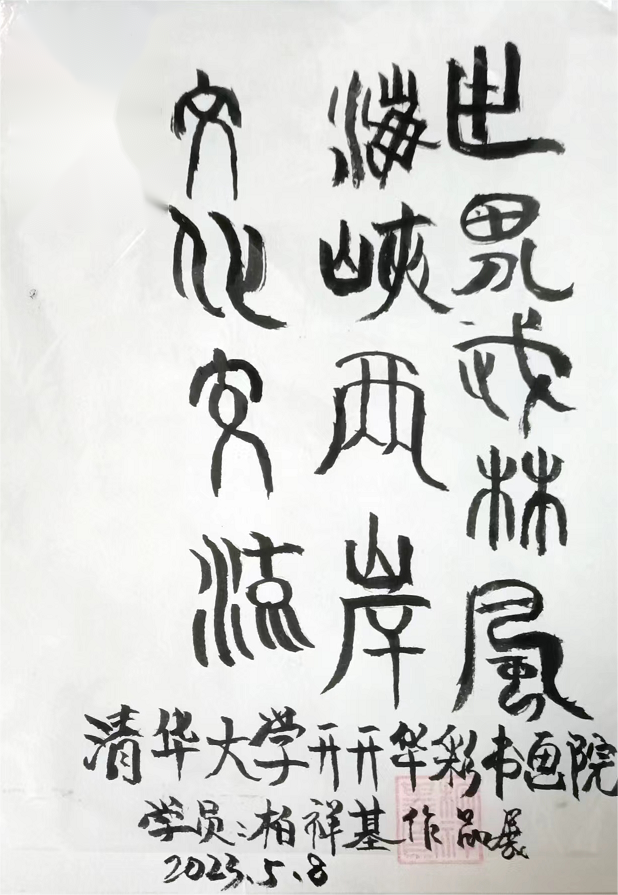 世界武林風
海峽兩岸
文化交流
清华大学开开华彩书画院
学员:柏祥基作品展
2023.5.8